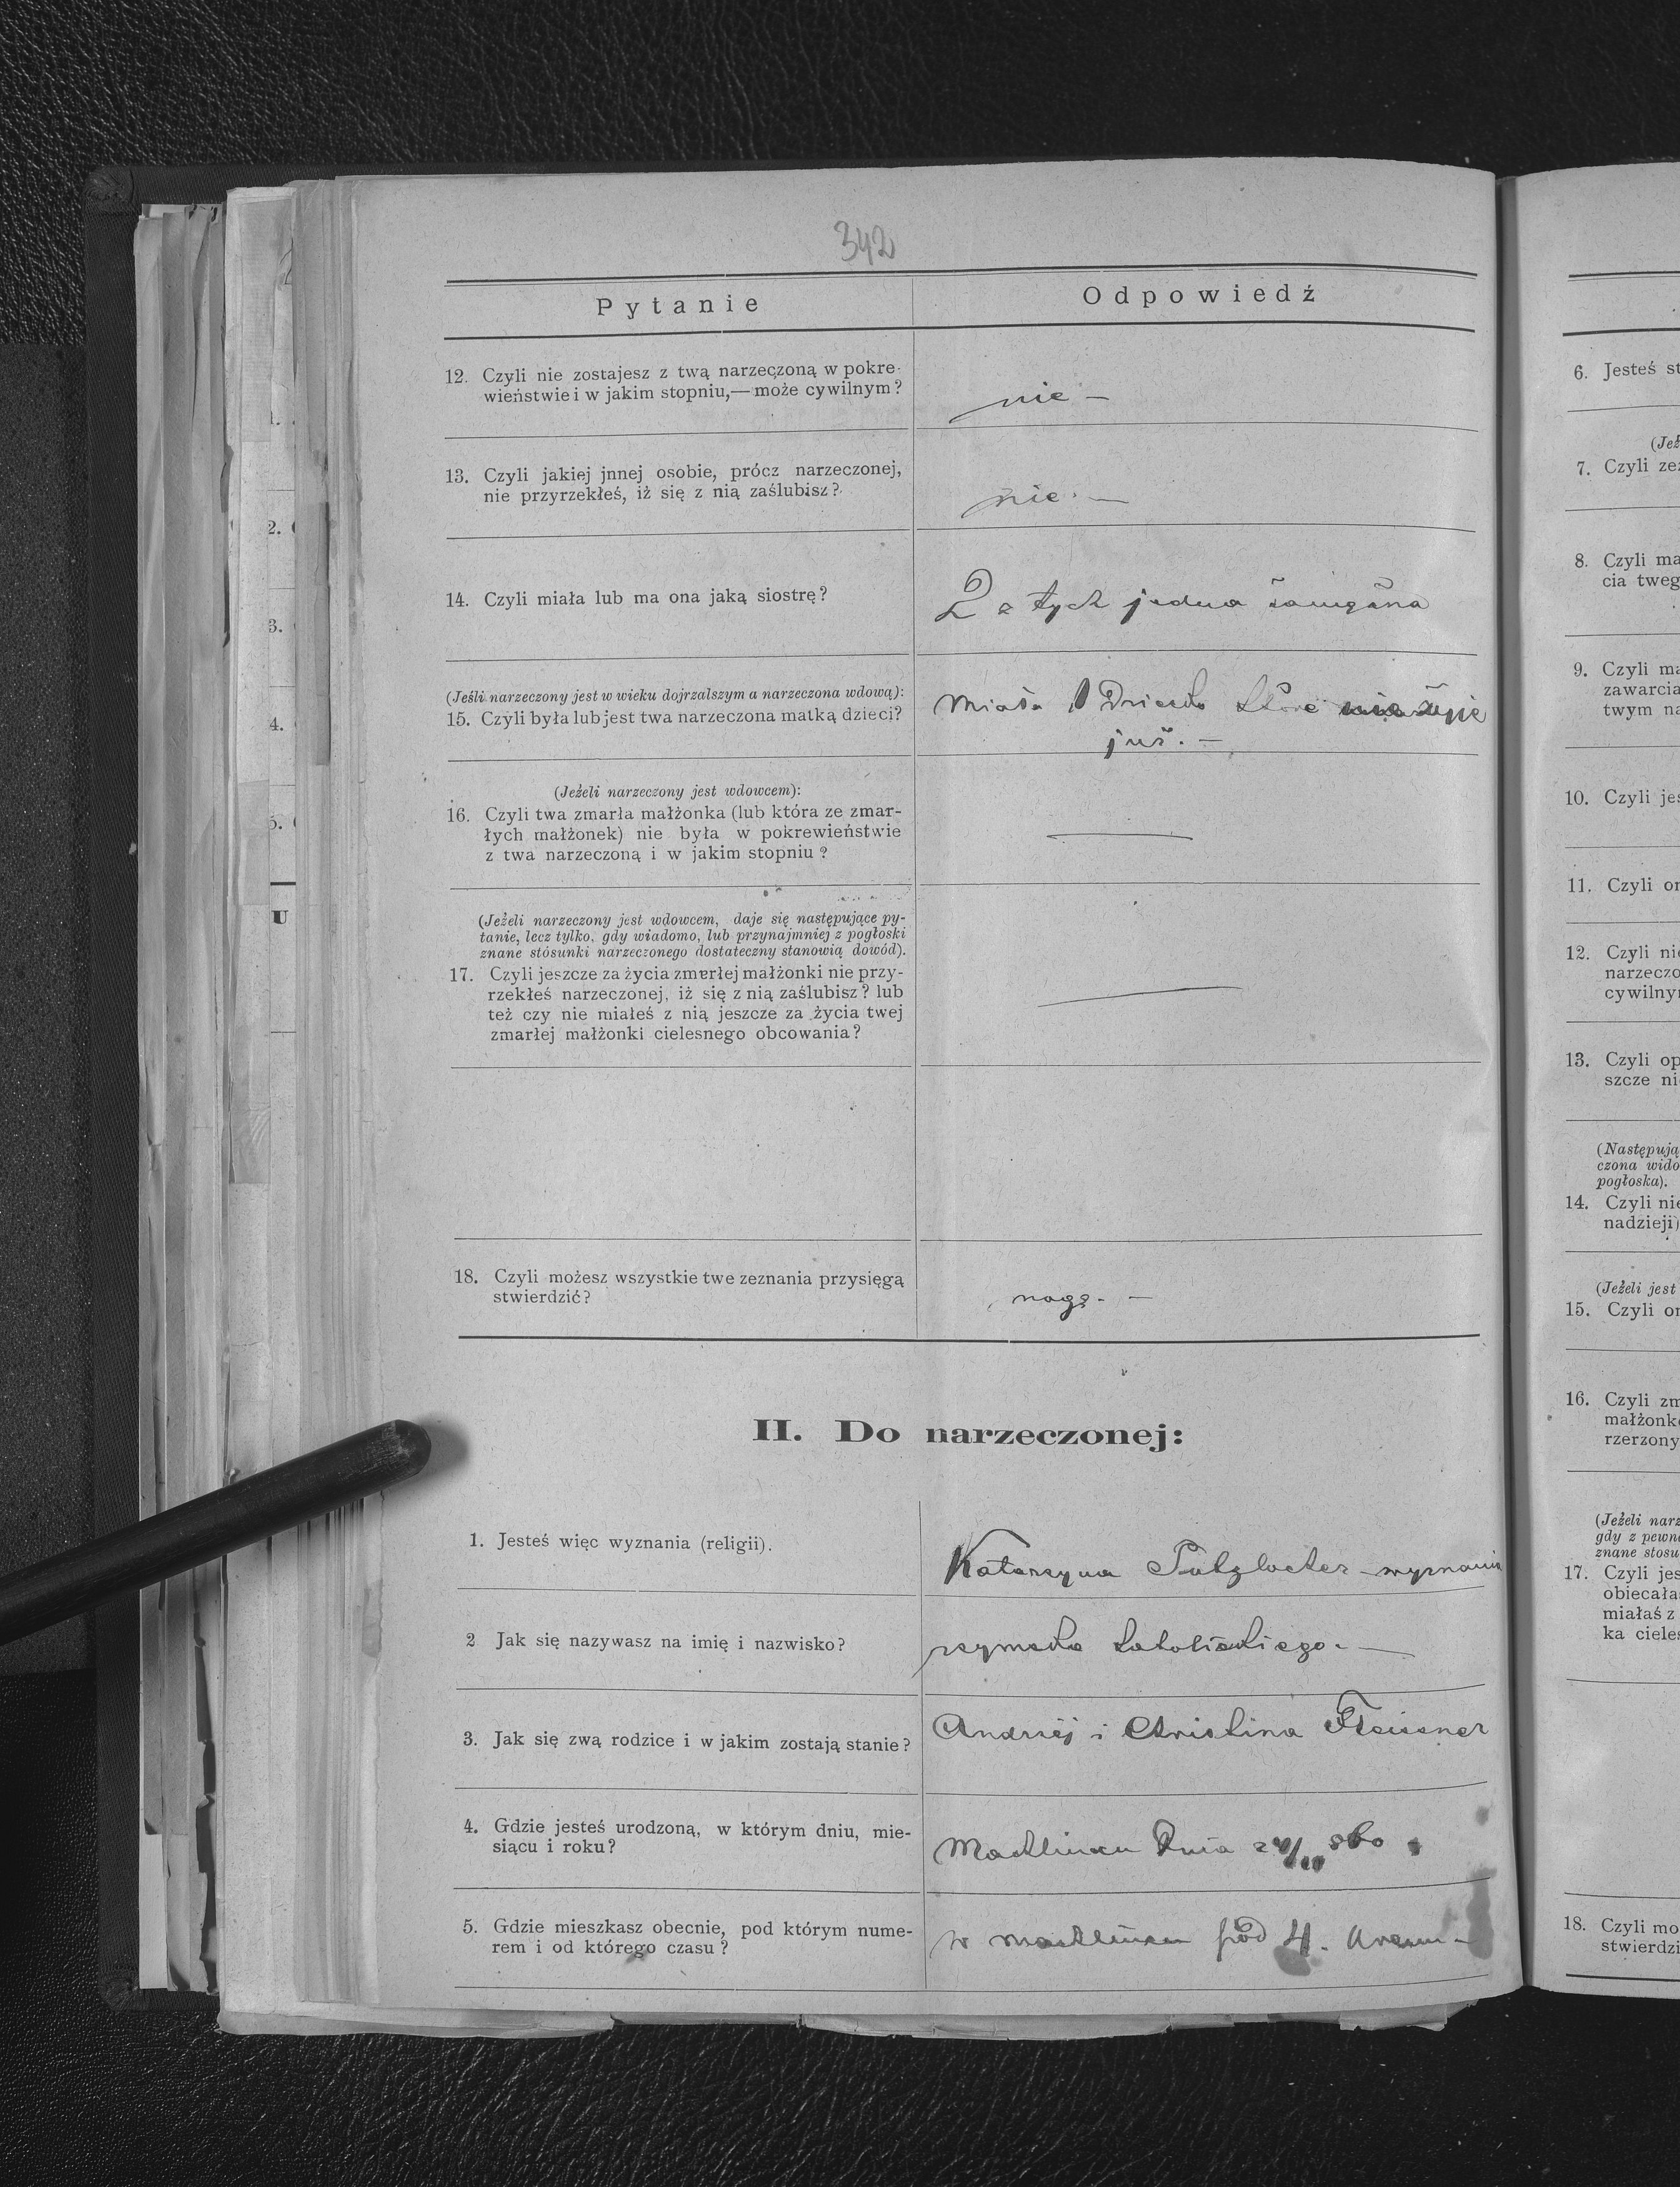 342
Pytanie
Odpowiedź
12. Czyli nie zostajesz z twą narzeczoną w pokre-
wieństwie i w jakim stopniu,—może cywilnym?
nie —
13. Czyli jakiej jnnej osobie, prócz narzeczonej,
nie przyrzekłeś, iż się z nią zaślubisz?
nie. —
14. Czyli miała lub ma ona jaką siostrę?
2 z tych jedna
(Jeśli narzeczony jest w wieku dojrzalszym a narzeczona wdową):
15. Czyli była lub jest twa narzeczona matką dzieci?
Miała 1 Dziecko które nie żyje
już. —
(Jeżeli narzeczony jest wdowcem):
16. Czyli twa zmarła małżonka (lub która ze zmar-
łych małżonek) nie była w pokrewieństwie
z twa narzeczoną i w jakim stopniu?
(Jeżeli narzeczony jest wdowcem, daje się następujące py-
tanie, lecz tylko, gdy wiadomo, lub przynajmniej z pogłoski
znane stósunki narzeczonego dostateczny stanowią dowód).
17. Czyli jeszcze za życia zmerłej małżonki nie przy-
rzekłeś narzeczonej, iż się z nią zaślubisz? lub
też czy nie miałeś z nią jeszcze za życia twej
zmarłej małżonki cielesnego obcowania?
18. Czyli możesz wszystkie twe zeznania przysięgą
stwierdzić?
mogę. —
II. Do narzeczonej:
1. Jesteś więc wyznania (religii).
Katarzyna wyznania
2 Jak się nazywasz na imię i nazwisko?
rzymsko katolickiego. —
3. Jak się zwą rodzice i w jakim zostają stanie?
Andrzej i Christina
4. Gdzie jesteś urodzoną, w którym dniu, mie-
siącu i roku?
Machliniec Dnia
5. Gdzie mieszkasz obecnie, pod którym nume-
rem i od którego czasu?
w pod 4.
6. Jesteś st
(Jeż
7. Czyli zez
8. Czyli ma
cia tweg
9. Czyli ma
zawarcia
twym na
10. Czyli jes
11. Czyli on
12. Czyli nie
narzeczo
cywilnym
13. Czyli op
szcze nie
(Następują
czona wido
pogłoska).
14. Czyli nie
nadzieji)
(Jeżeli jest
15. Czyli on
16. Czyli zm
małżonko
rzerzony
(Jeżeli narz
gdy z pewn
znane stosu
17. Czyli jes
obiecała
miałaś z
ka cieles
18. Czyli mo
stwierdzi